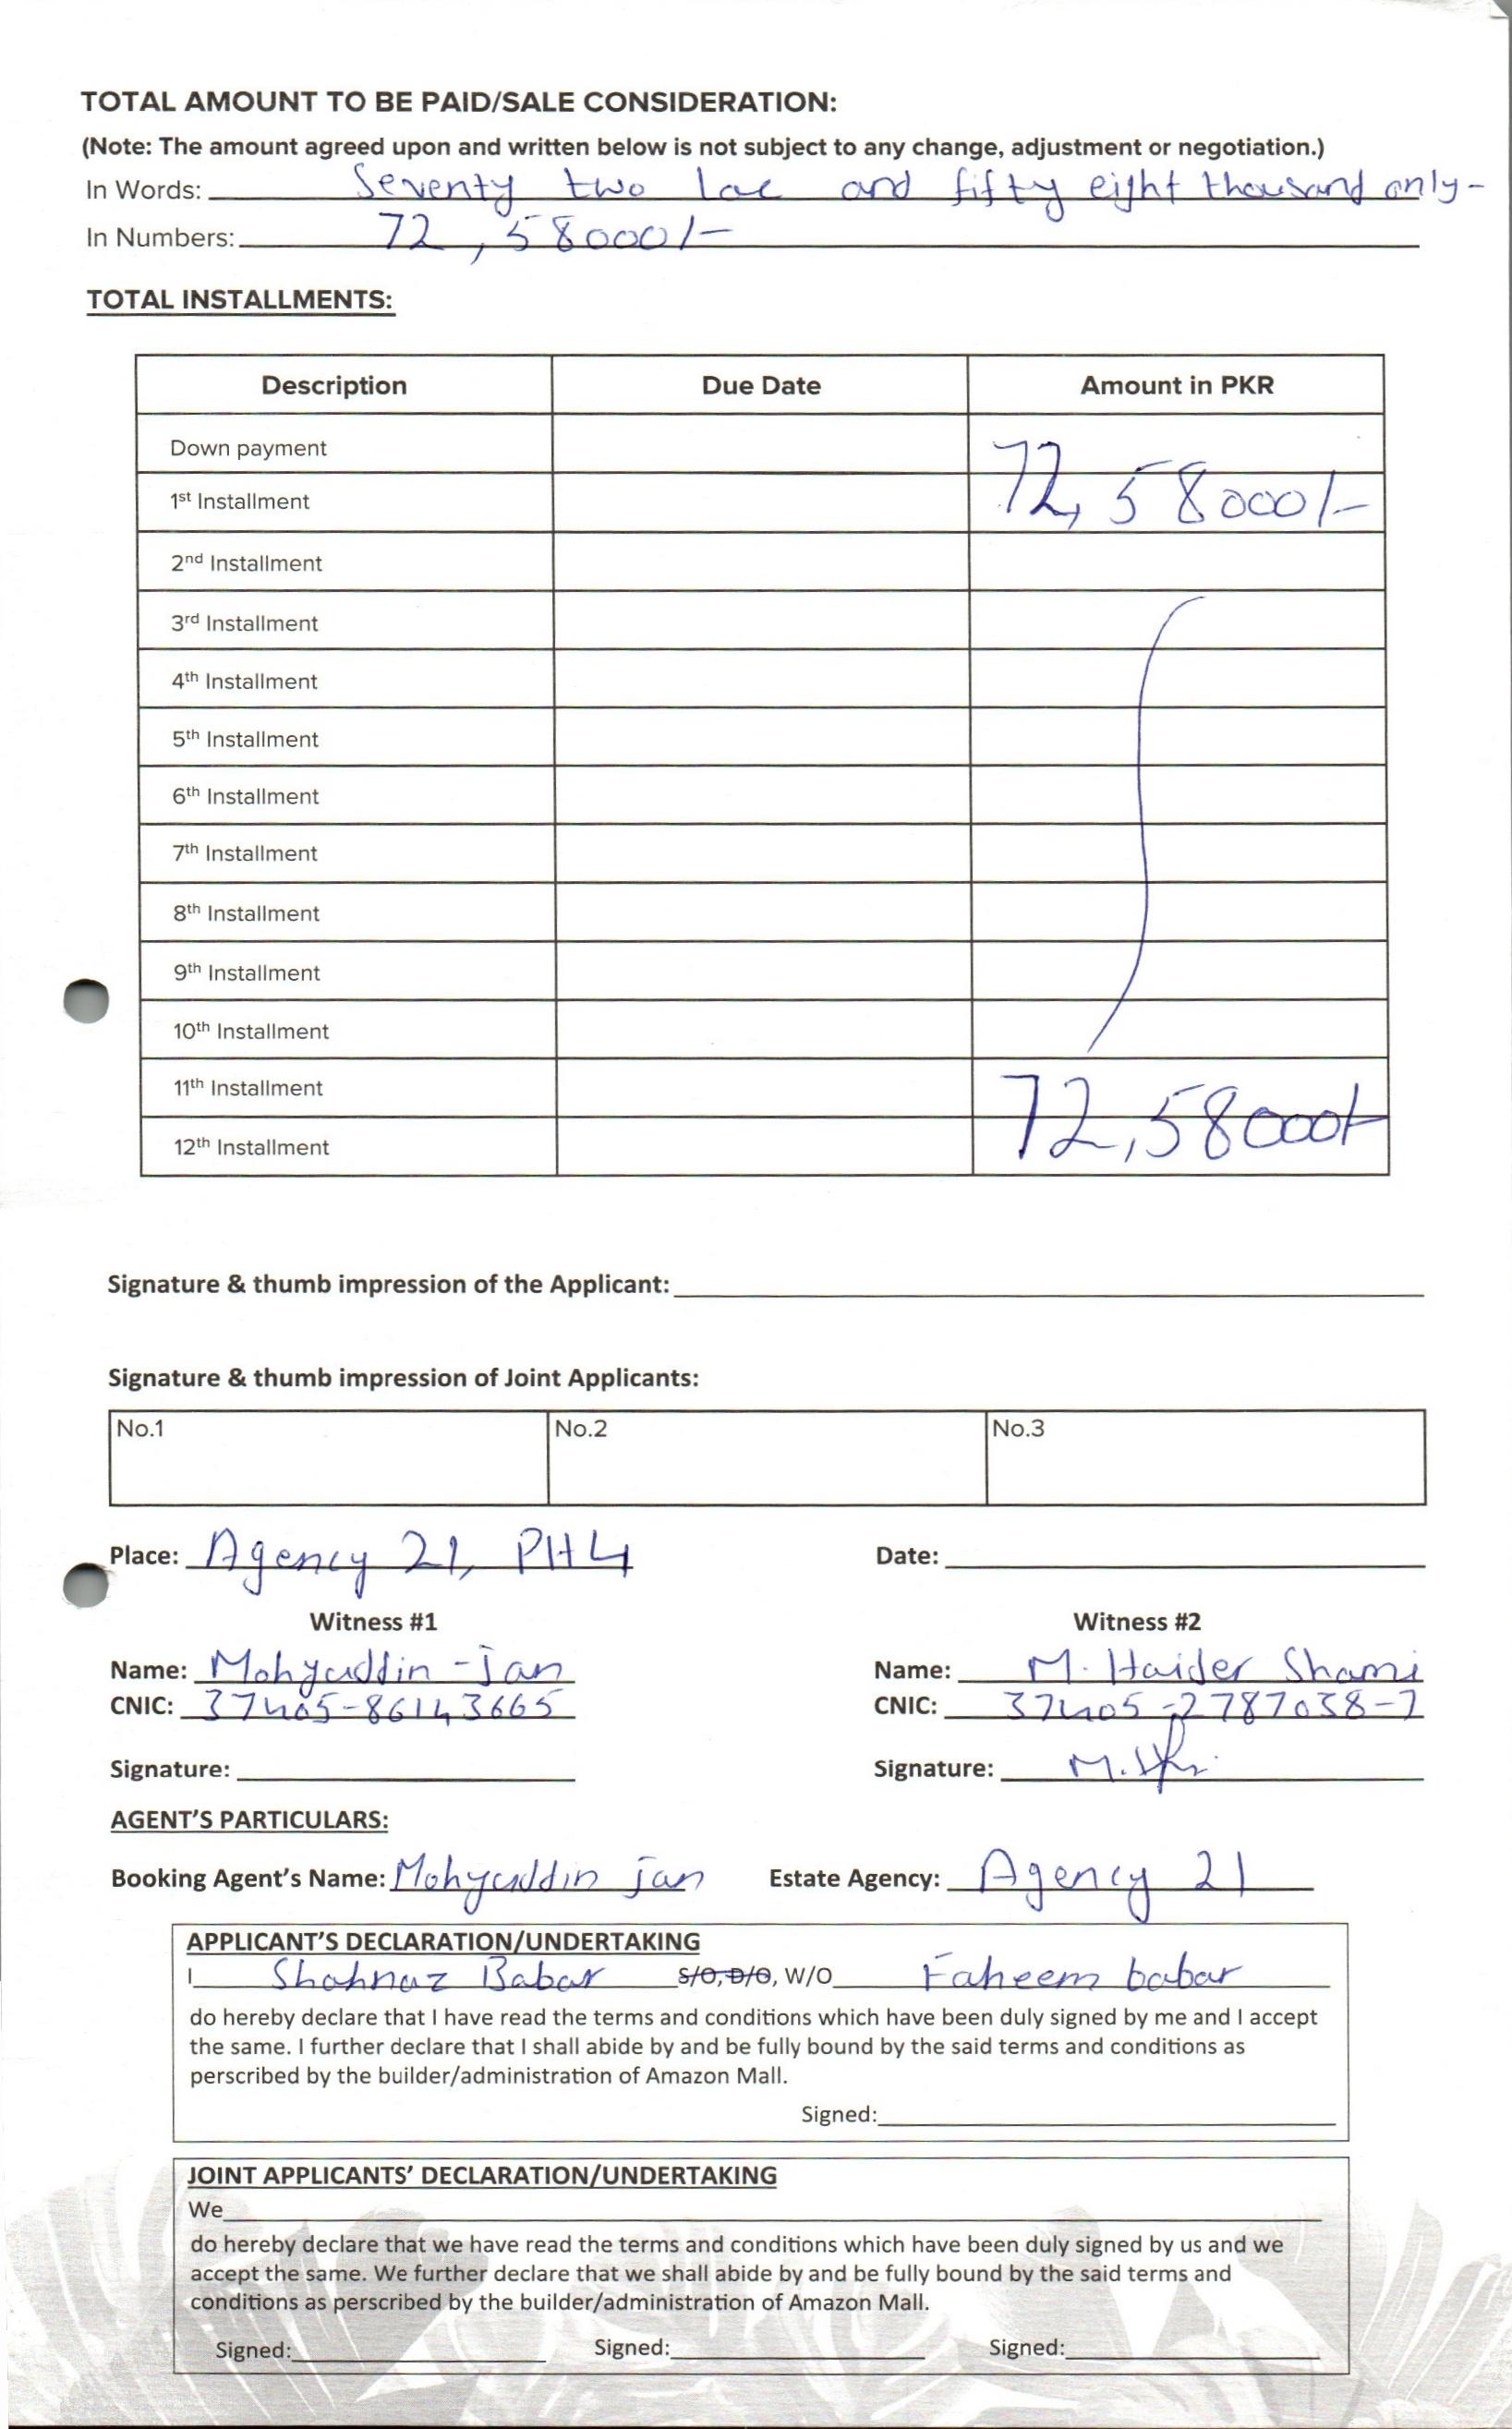 TOTAL AMOUNT TO BE PAID/SALE CONSIDERATION:
(Note: The amount agreed upon and written below is not subject to any change, adjustment or negotiation.)
In Words: Seventy two lac and fifty eight thousand only-
In Numbers: 72,58000/-
TOTAL INSTALLMENTS:
Description Due Date Amount in PKR
Down payment
1st Installment 72,58000/-
2nd Installment
3rd Installment
4th Installment
5th Installment
6th Installment
7th Installment
8th Installment
9th Installment
10th Installment
11th Installment
12th Installment 72,58000/-
Signature & thumb impression of the Applicant:
Signature & thumb impression of Joint Applicants:
No.1 No.2 No.3
Place: Agency 21, PH4 Date:
Witness #1 Witness #2
Name: Mohyuddin-jan Name: M. Haider Shami
CNIC: 37405-86143665 CNIC: 37405-2787038-7
Signature: Signature:
AGENT'S PARTICULARS:
Booking Agent's Name: Mohyuddin jan Estate Agency: Agency 21
APPLICANT'S DECLARATION/UNDERTAKING
I Shahnaz Babar S/O, D/O, W/O Faheem babar
do hereby declare that I have read the terms and conditions which have been duly signed by me and I accept
the same. I further declare that I shall abide by and be fully bound by the said terms and conditions as
perscribed by the builder/administration of Amazon Mall.
Signed:
JOINT APPLICANTS' DECLARATION/UNDERTAKING
We
do hereby declare that we have read the terms and conditions which have been duly signed by us and we
accept the same. We further declare that we shall abide by and be fully bound by the said terms and
conditions as perscribed by the builder/administration of Amazon Mall.
Signed: Signed: Signed: